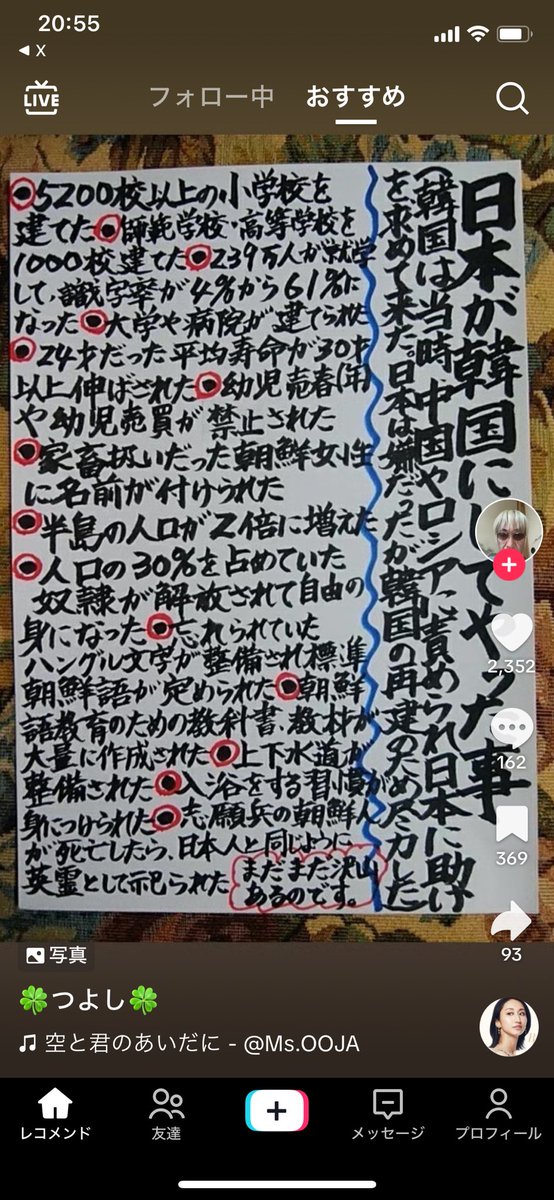 20:55
◀ X
LIVE
フォロー中
おすすめ
日本が韓国にしてやった事
(韓国は当時中国やロシアに責められ日本に助け
を求めて来た。日本は嫌だったが韓国の再建のため尽力した)
●5200校以上の小学校を
建てた●師範学校・高等学校を
1000校建てた●239万人が就学
して、識字率が4%から61%に
なった●大学や病院が建てられた
●24才だった平均寿命が30才
以上伸ばされた●幼児売春(年)
や幼児売買が禁止された
●家畜扱いだった朝鮮女性
に名前が付けられた
●半島の人口が2倍に増えた
●人口の30%を占めていた
奴隷が解放されて自由の
身になった●忘れられていた
ハングル文字が整備され標準
朝鮮語が定められた●朝鮮
語教育のための教科書、教材が
大量に作成された●上下水道が
整備された●入浴をする習慣が
身につけられた●志願兵の朝鮮人
が死亡したら、日本人と同じように
英霊として祀られた
まだまだ沢山
あるのです。
2,352
162
369
93
写真
🍀つよし🍀
♫ 空と君のあいだに - @Ms.OOJA
レコメンド
友達
メッセージ
プロフィール